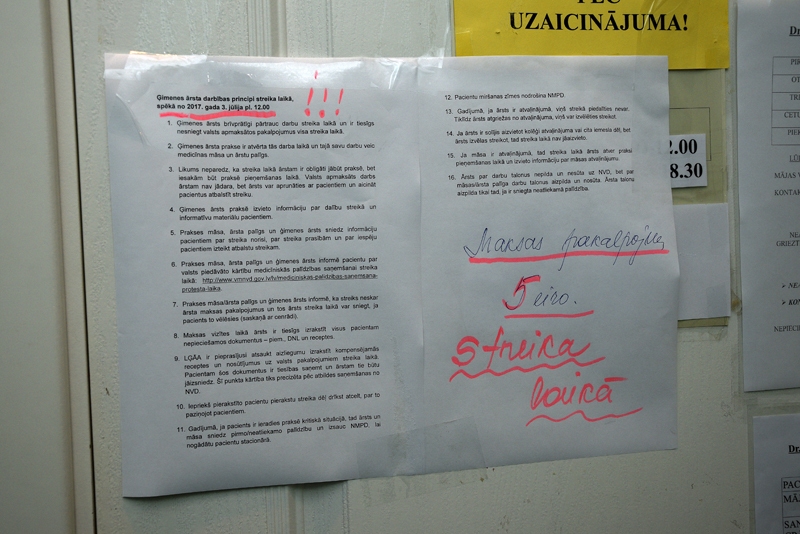 UZAICINĀJUMA!
Ģimenes ārsta darbības principi streika laikā,
spēkā no 2017. gada 3. jūlija pl. 12.00
!!!
1. Ģimenes ārsts brīvprātīgi pārtrauc darbu streika laikā un ir tiesīgs
nesniegt valsts apmaksātos pakalpojumus visa streika laikā.
2. Ģimenes ārsta prakse ir atvērta tās darba laikā un tajā savu darbu veic
medicīnas māsa un ārstu palīgs.
3. Likums neparedz, ka streika laikā ārstam ir obligāti jābūt praksē, bet
iesakām būt praksē pieņemšanas laikā. Valsts apmaksāts darbs
ārstam nav jādara, bet ārsts var aprunāties ar pacientiem un aicināt
pacientus atbalstīt streiku.
4. Ģimenes ārsts praksē izvieto informāciju par dalību streikā un
informatīvu materiālu pacientiem.
5. Prakses māsa, ārsta palīgs un ģimenes ārsts sniedz informāciju
pacientiem par streika norisi, par streika prasībām un par iespēju
pacientiem izteikt atbalstu streikam.
6. Prakses māsa, ārsta palīgs un ģimenes ārsts informē pacientu par
valsts piedāvāto kārtību medicīniskās palīdzības saņemšanai streika
laikā: http://www.vmnvd.gov.lv/lv/mediciniskas-palidzibas-sanemsana-
protesta-laika.
7. Prakses māsa/ārsta palīgs un ģimenes ārsts informē, ka streiks neskar
ārsta maksas pakalpojumus un tos ārsts streika laikā var sniegt, ja
pacients to vēlēsies (saskaņā ar cenrādi).
8. Maksas vizītes laikā ārsts ir tiesīgs izrakstīt visus pacientam
nepieciešamos dokumentus – piem., DNL un receptes.
9. LĢĀA ir pieprasījusi atsaukt aizliegumu izrakstīt kompensējamās
receptes un nosūtījumus uz valsts pakalpojumiem streika laikā.
Pacientam šos dokumentus ir tiesības saņemt un ārstam tie būtu
jāizsniedz. Šī punkta kārtība tiks precizēta pēc atbildes saņemšanas no
NVD.
10. Iepriekš pierakstīto pacientu pierakstu streika dēļ drīkst atcelt, par to
paziņojot pacientiem.
11. Gadījumā, ja pacients ir ieradies praksē kritiskā situācijā, tad ārsts un
māsa sniedz pirmo/neatliekamo palīdzību un izsauc NMPD, lai
nogādātu pacientu stacionārā.
12. Pacientu miršanas zīmes nodrošina NMPD.
13. Gadījumā, ja ārsts ir atvaļinājumā, viņš streikā piedalīties nevar.
Tiklīdz ārsts atgriežas no atvaļinājuma, viņš var izvēlēties streikot.
14. Ja ārsts ir solījis aizvietot kolēģi atvaļinājumā vai cita iemesla dēļ, bet
ārsts izvēlas streikot, tad streika laikā nav jāaizvieto.
15. Ja māsa ir atvaļinājumā, tad streika laikā ārsts atver praksi
pieņemšanas laikā un izvieto informāciju par māsas atvaļinājumu.
16. Ārsts par darbu talonus nepilda un nesūta uz NVD, bet par
māsas/ārsta palīga darbu talonus aizpilda un nosūta. Ārsta talonu
aizpilda tikai tad, ja ir sniegta neatliekamā palīdzība.
Maksas pakalpojumi
5 eiro.
streika
laikā
2.00
8.30